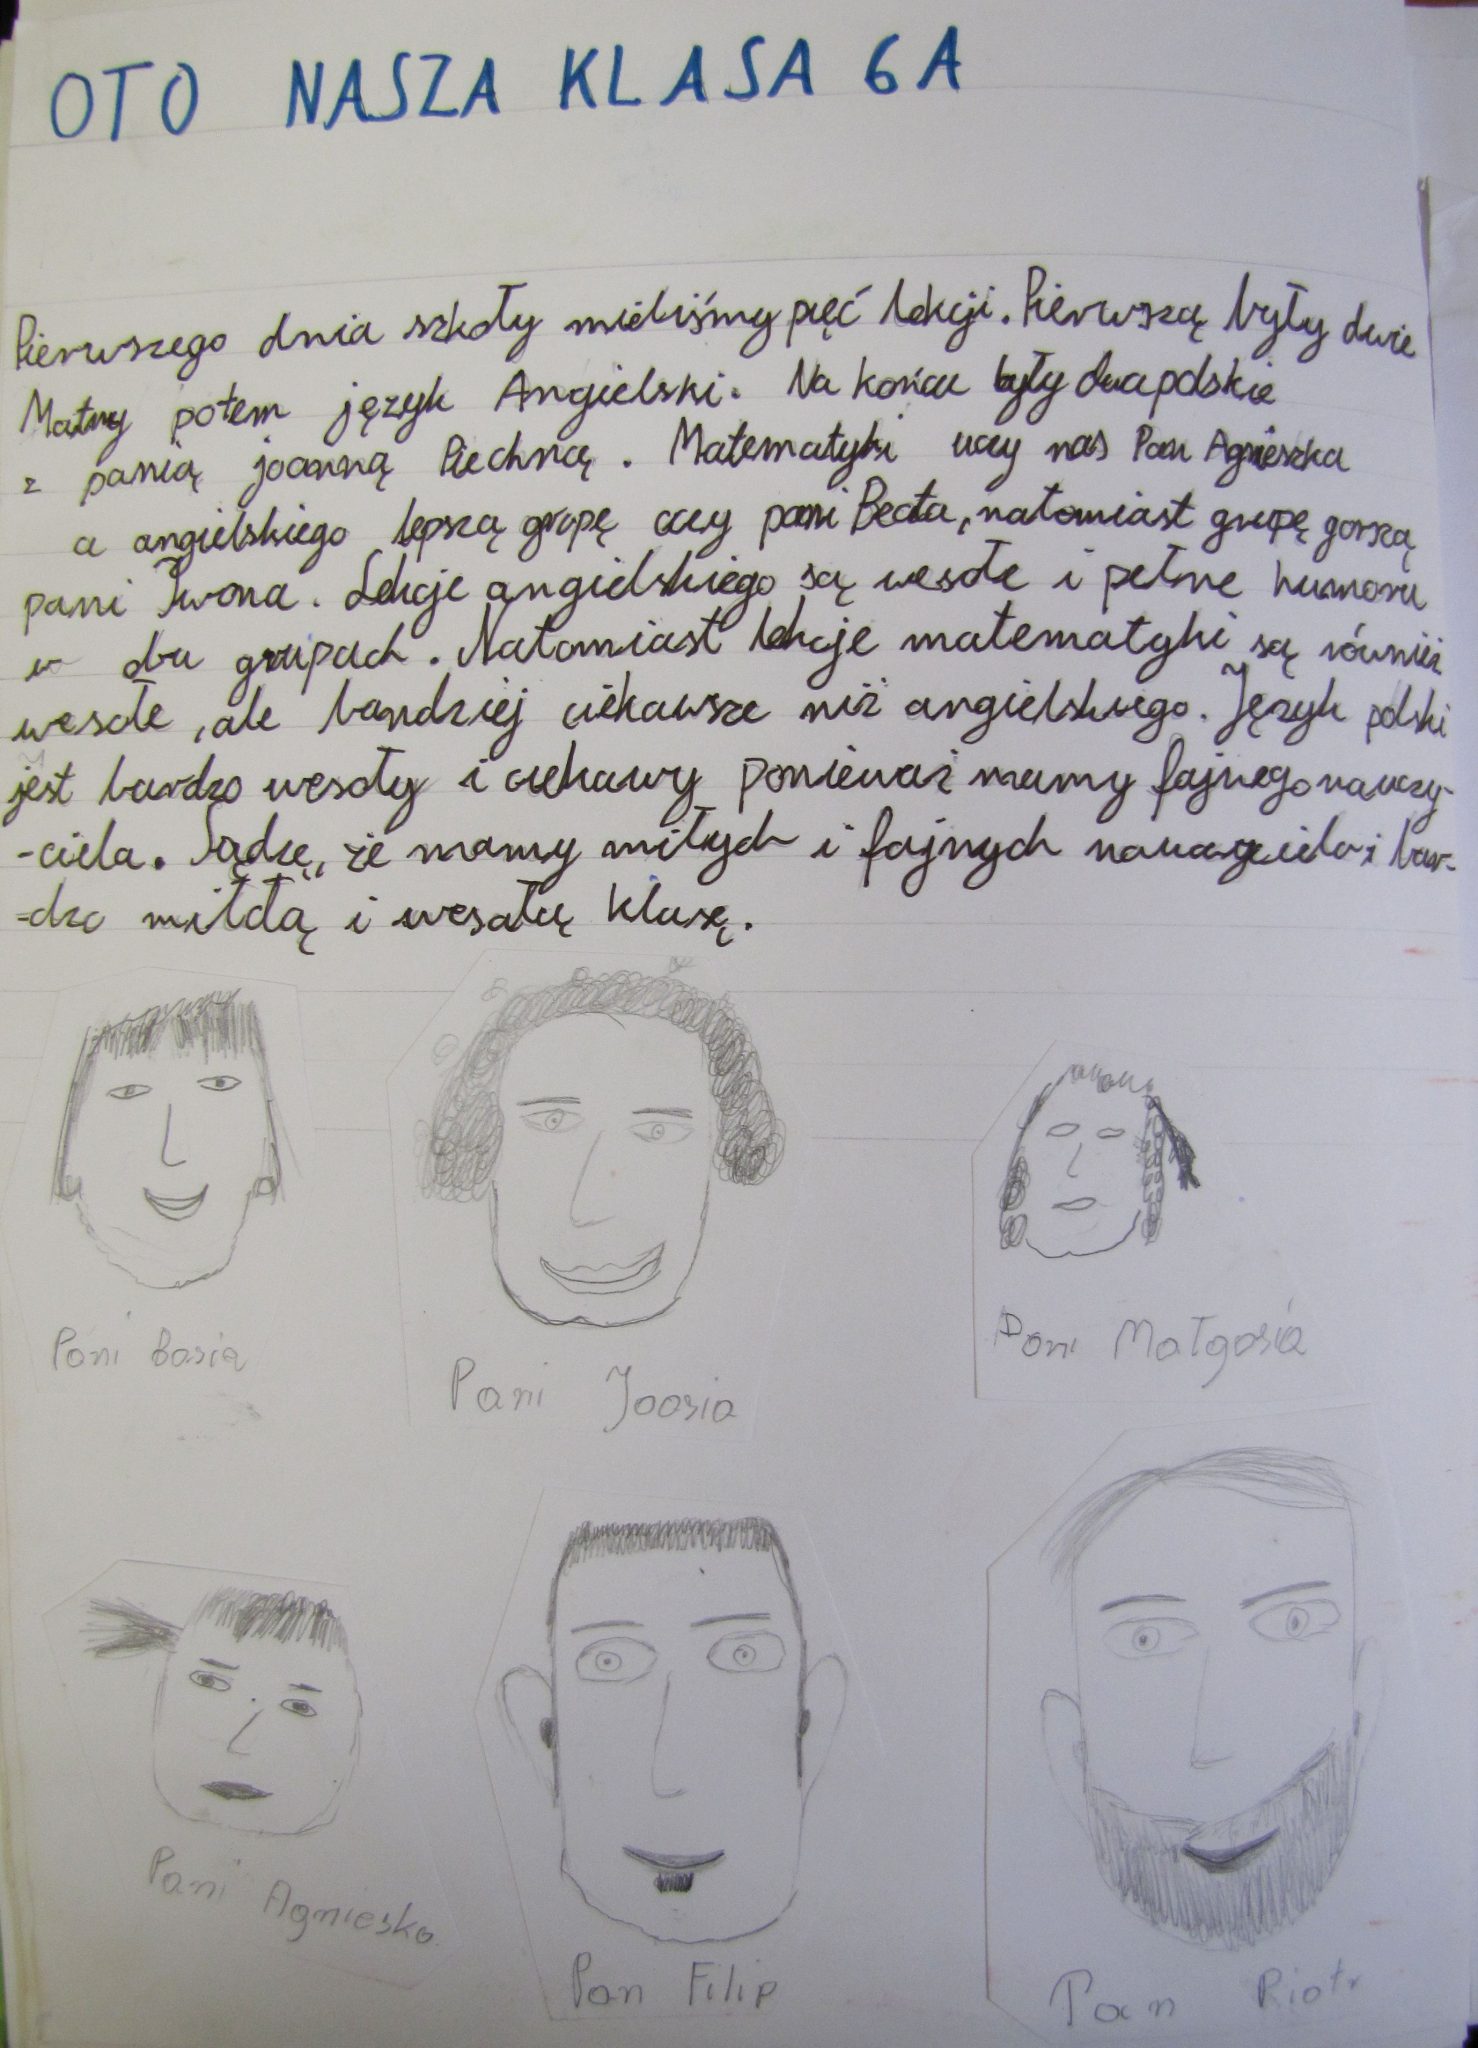 OTO NASZA KLASA 6A
Pierwszego dnia szkoły mieliśmy pięć lekcji. Pierwszą były dwie
Matmy potem język Angielski. Na końcu były dwa polskie
z panią joanną Piechną. Matematyki uczy nas Pani Agnieszka
a angielskiego lepszą grupę uczy pani Beata, natomiast grupę gorszą
pani Iwona. Lekcje angielskiego są wesołe i pełne humoru
w du grupach. Natomiast lekcje matematyki są również
wesołe, ale bardziej ciekawsze niż angielskiego. Język polski
jest bardzo wesoły i ciekawy ponieważ mamy fajnego nauczy-
-ciela. Sądzę, że mamy miłych i fajnych i bar-
-dzo miłą i wesołą klasę.
Pani Basia
Pani Joasia
Pani Małgosia
Pani Agnieska
Pan Filip
Pan Piotr